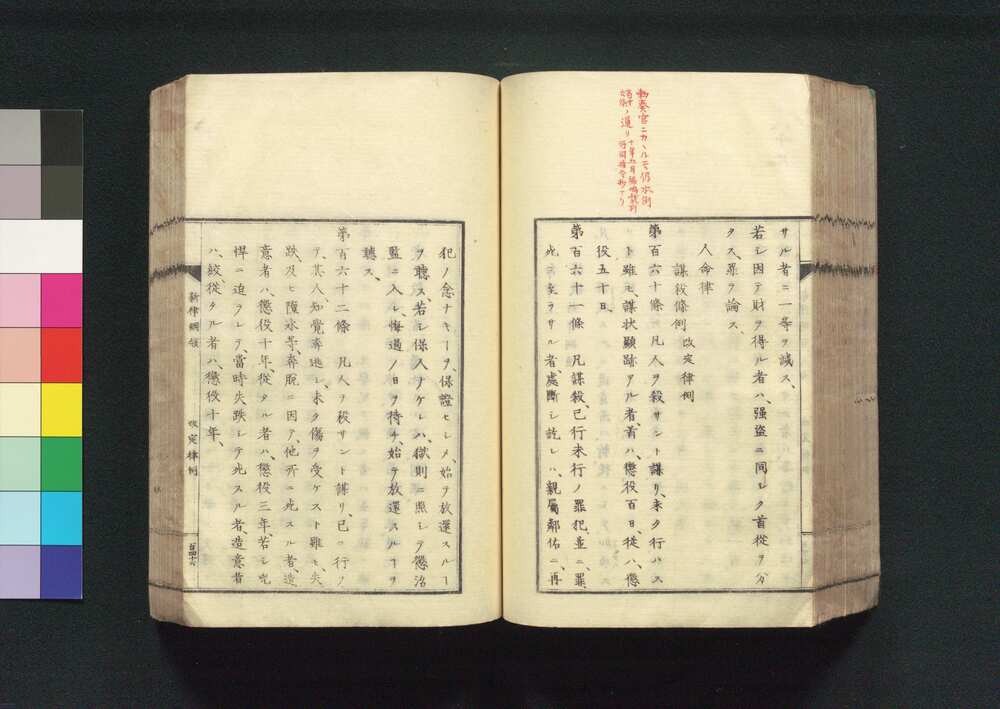 サル者ニ一等ヲ減ス、
若シ因テ財ヲ得ル者ハ、强盜ニ同シク首從ヲ分
タス、罪ヲ論ス、
人命律
謀殺條例 改定律例
第百六十條 凡人ヲ殺サント謀リ、未タ行ハス
ト雖モ、謀狀顯跡アル者、首ハ懲役百日、從ハ、懲
役五十日、
第百六十一條 凡謀殺、已行未行ノ罪犯並ニ、罪、
死ニ至ラサル者、處斷シ訖レハ、親屬鄰佑ニ、再
犯ノ念ナキヿヲ、保證セシメ、始テ放還スルヿ
ヲ聽ス、若シ保人ナケレハ、獄則ニ照シテ懲治
監ニ入レ、悔過ノ日ヲ待チ、始テ放還スルヿヲ
聽ス、
第百六十二條 凡人ヲ殺サント謀リ、已ニ行フ
テ、其人、知覺奔逃シ、未タ傷ヲ受ケスト雖モ、失
跌、及ヒ墮水等、奔脫ニ因テ、他所ニ死スル者、造
意者ハ、懲役十年、從タル者ハ、懲役三年、若シ兇
悍ニ迫ラレテ、當時失跌シテ死スル者、造意者
ハ、絞、從タル者ハ、懲役十年、
新律綱領 改定律例 百四十六